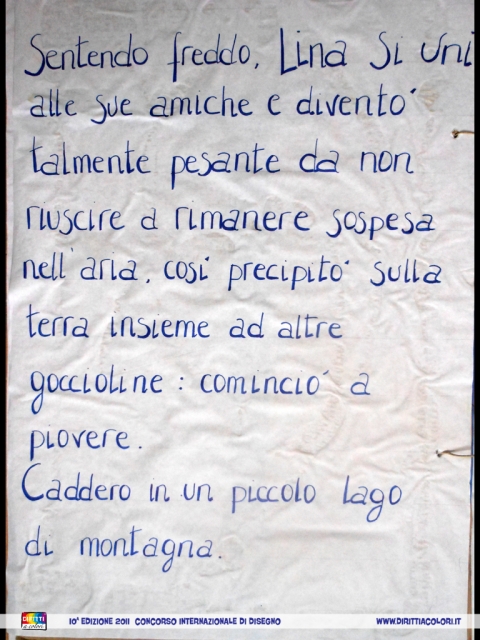 Sentendo freddo, Lina si unì
alle sue amiche e diventò
talmente pesante da non
riuscire a rimanere sospesa
nell'aria, così precipitò sulla
terra insieme ad altre
goccioline : cominciò a
piovere.
Caddero in un piccolo lago
di montagna.
DIRITTI a colori 10ª EDIZIONE 2011 CONCORSO INTERNAZIONALE DI DISEGNO WWW.DIRITTIACOLORI.IT